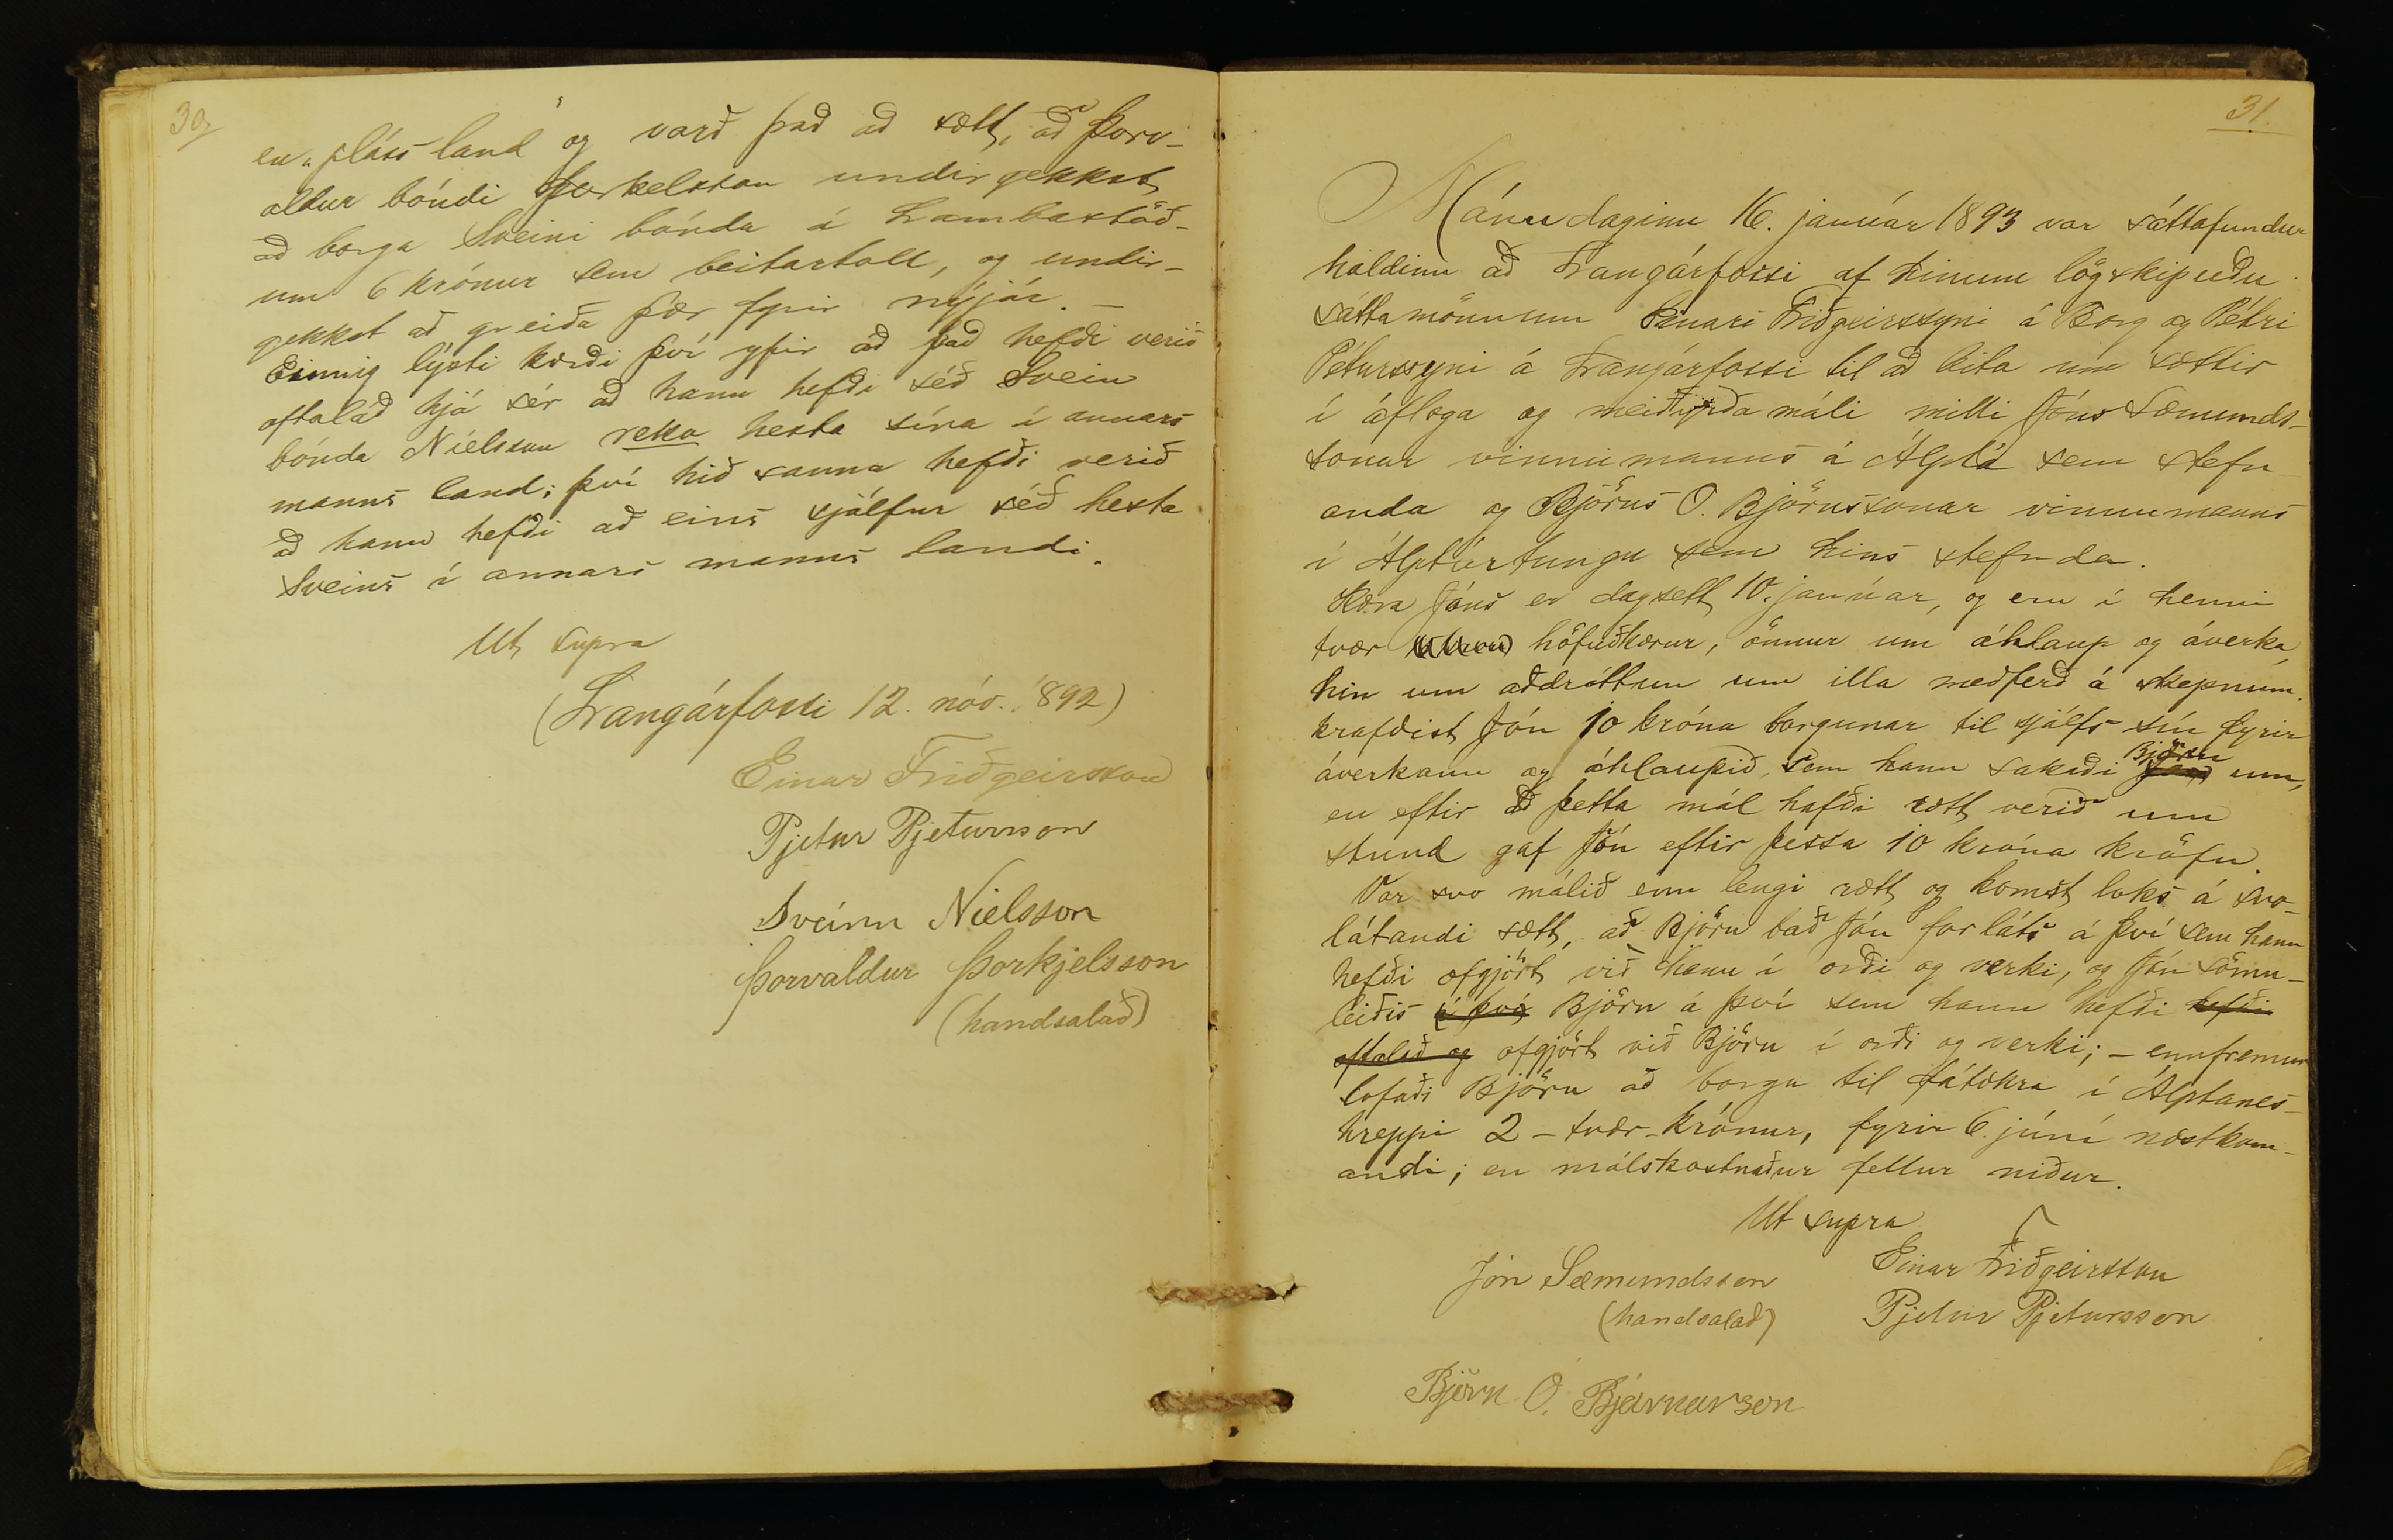 30.
en „pláss land“ og varð það að sætt, að Þorv-
aldur bóndi Þorkelsson undirgekkst
að borga Sveini bónda á Lambastöð-
um 6 krónur sem beitartoll, og undir-
gekkst að greiða þær fyrir nýjár. –
Einnig lýsti kærði því yfir að það hefði verið
oftalað hjá sér að hann hefði séð Svein
bónda Níelsson reka hesta sína í annars
manns land; því hið sanna hefði verið
að hann hefði að eins sjálfur séð hesta
Sveins í annars manns landi.
Ut supra
(Langárfossi 12. nóv. 1892)
Einar Friðgeirsson
Pjetur Pjetursson
Sveinn Níelsson
Þorvaldur Þorkjelsson
(handsalað)
31.
Mánudaginn 16. janúar 1893 var sáttafundur
haldinn að Langárfossi af hinum lögskipuðu
sáttamönnum Einari Friðgeirssyni á Borg og Pétri
Péturssyni á Langárfossi til að leita um sættir
í áfloga og meiðyrða máli milli Jóns Sæmunds-
sonar vinnumanns á Álptá sem stefn
anda og Björns O. Björnssonar vinnumanns
í Álptártungu sem hins stefnda.
Kæra Jóns er dagsett 10. janúar, og eru í henni
tvær höfuðkærur, önnur um áhlaup og áverka,
hin um aðdróttun um illa meðferð á skepnum.
krafðist Jón 10 króna borgunar til sjálfs sín fyrir
áverkann og áhlaupið, sem hann sakaði Björn um,
en eftir að þetta mál hafði rætt verið um
stund gaf Jón eftir þessa 10 króna kröfu.
Var svo málið enn lengi rætt og komst loks á svo-
látandi sætt, að Björn bað Jón forláts á því sem hann
hefði ofgjört við hann í orði og verki, og Jón sömu-
leiðis á því Björn á því sem hann hefði hefði
oftalað og ofgjört við Björn í orði og verki; – ennfremur
lofaði Björn að borga til fátækra í Álptanes-
hreppi 2 – tvær – krónur, fyrir 6. júní næstkom-
andi; en málskostnaður fellur niður.
Ut supra
Jón Sæmundsson
(handsalað)
Einar Friðgeirsson
Pjetur Pjetursson
Björn O. Bjarnarson